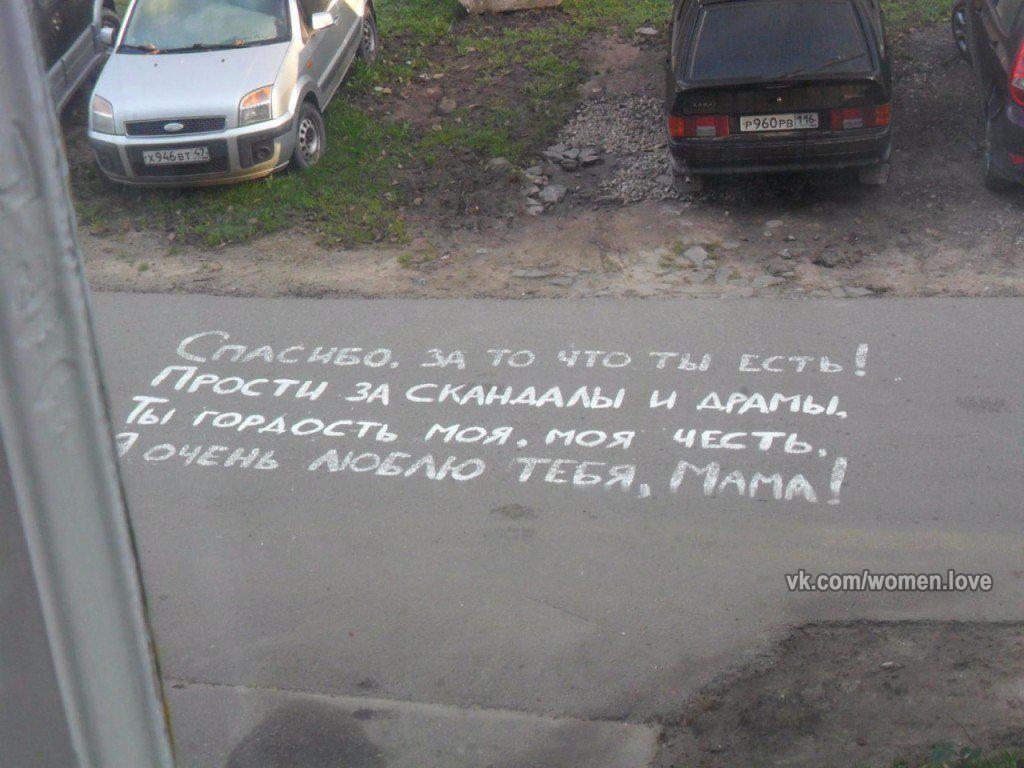 Х946ВТ 47
Р960РВ 116
Спасибо, за то что ты есть!
Прости за скандалы и драмы.
Ты гордость моя, моя честь.
Я очень люблю тебя, Мама!
vk.com/women.love